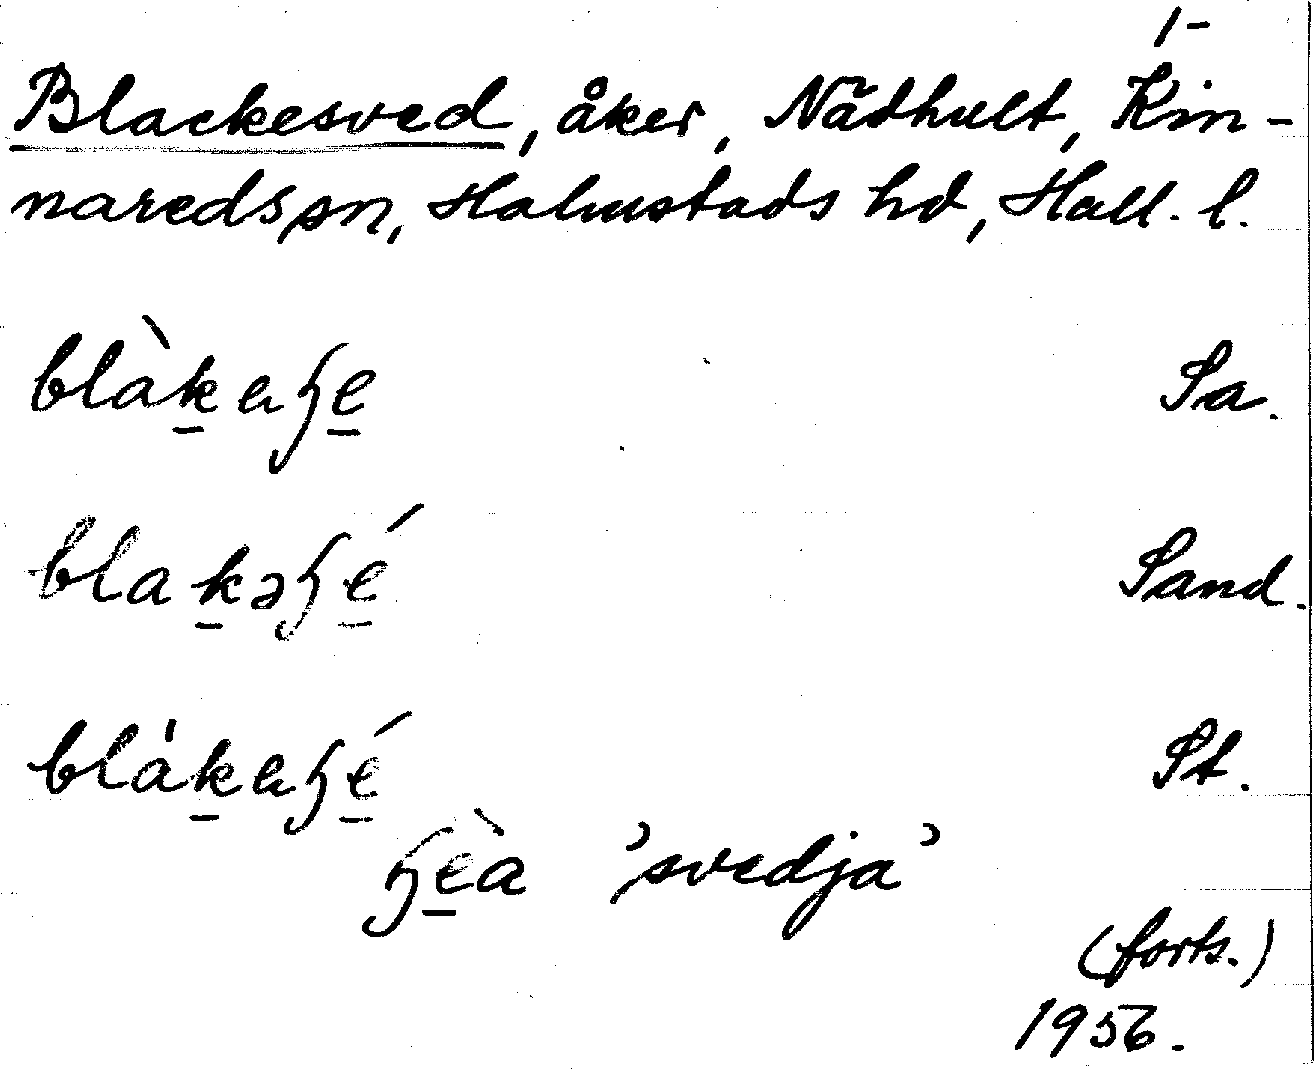 1-
Blackesved, åker, Nädhult, Kin-
naredssn, Halmstads hd, Hall. l.
blàkaɧe Sa.
blakəɧé Sand.
blákaɧé St.
ɧèa 'svedja'
(forts.)
1956.